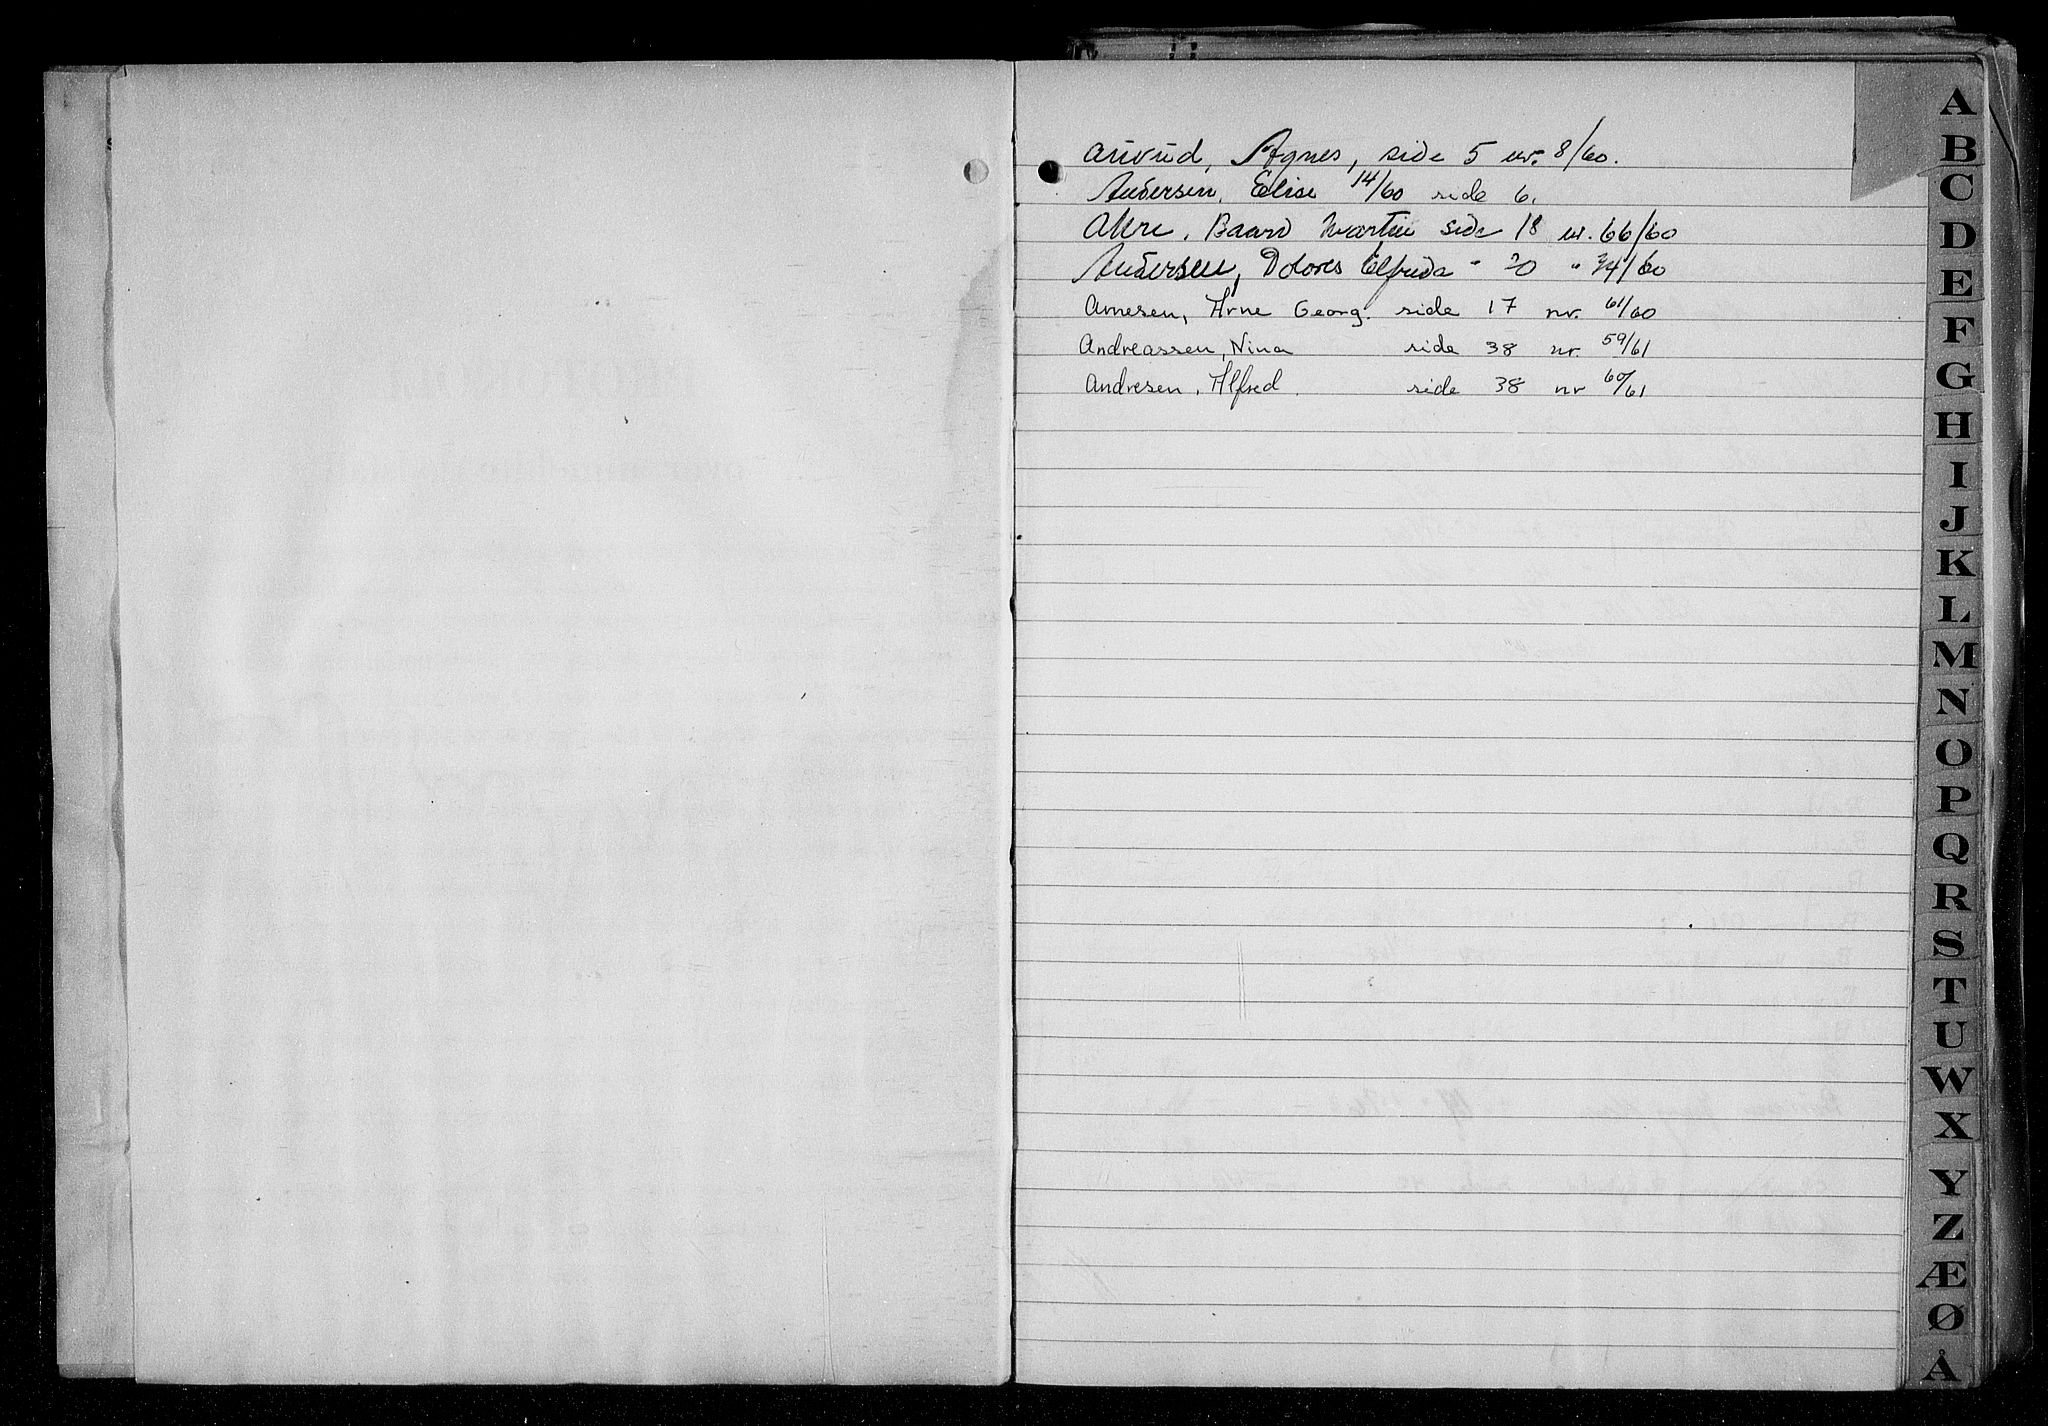 Auvrud, Agnes, side 5 nr. 8/60.
Andersen, Elise 14/60 side 6.
Akre, Baard Martin side 18 nr. 66/60
Andersen, Dolores Elfrida " 20 " 74/60
Arnesen, Arne Georg. side 17 nr. 61/60
Andreassen, Nina side 38 nr. 59/61
Andresen, Alfred. side 38 nr 60/61
A
B
C
D
E
F
G
H
I
J
K
L
M
N
O
P
Q
R
S
T
U
W
X
Y
Z
Æ
Ø
Å